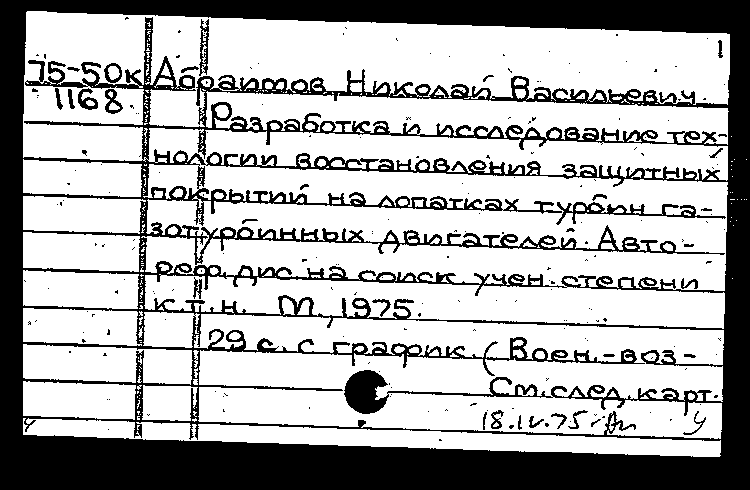 1
75-50к Абраимов, Николай Васильевич.
1168.
Разработка и исследование тех-
нологии восстановления защитных
покрытий на лопатках турбин га-
зотурбинных двигателей. Авто-
реф. дис. на соиск. учен. степени
к.т.н. М., 1975.
29 с. с график. (Воен.-воз-
См. след. карт.
18.IV.75
У